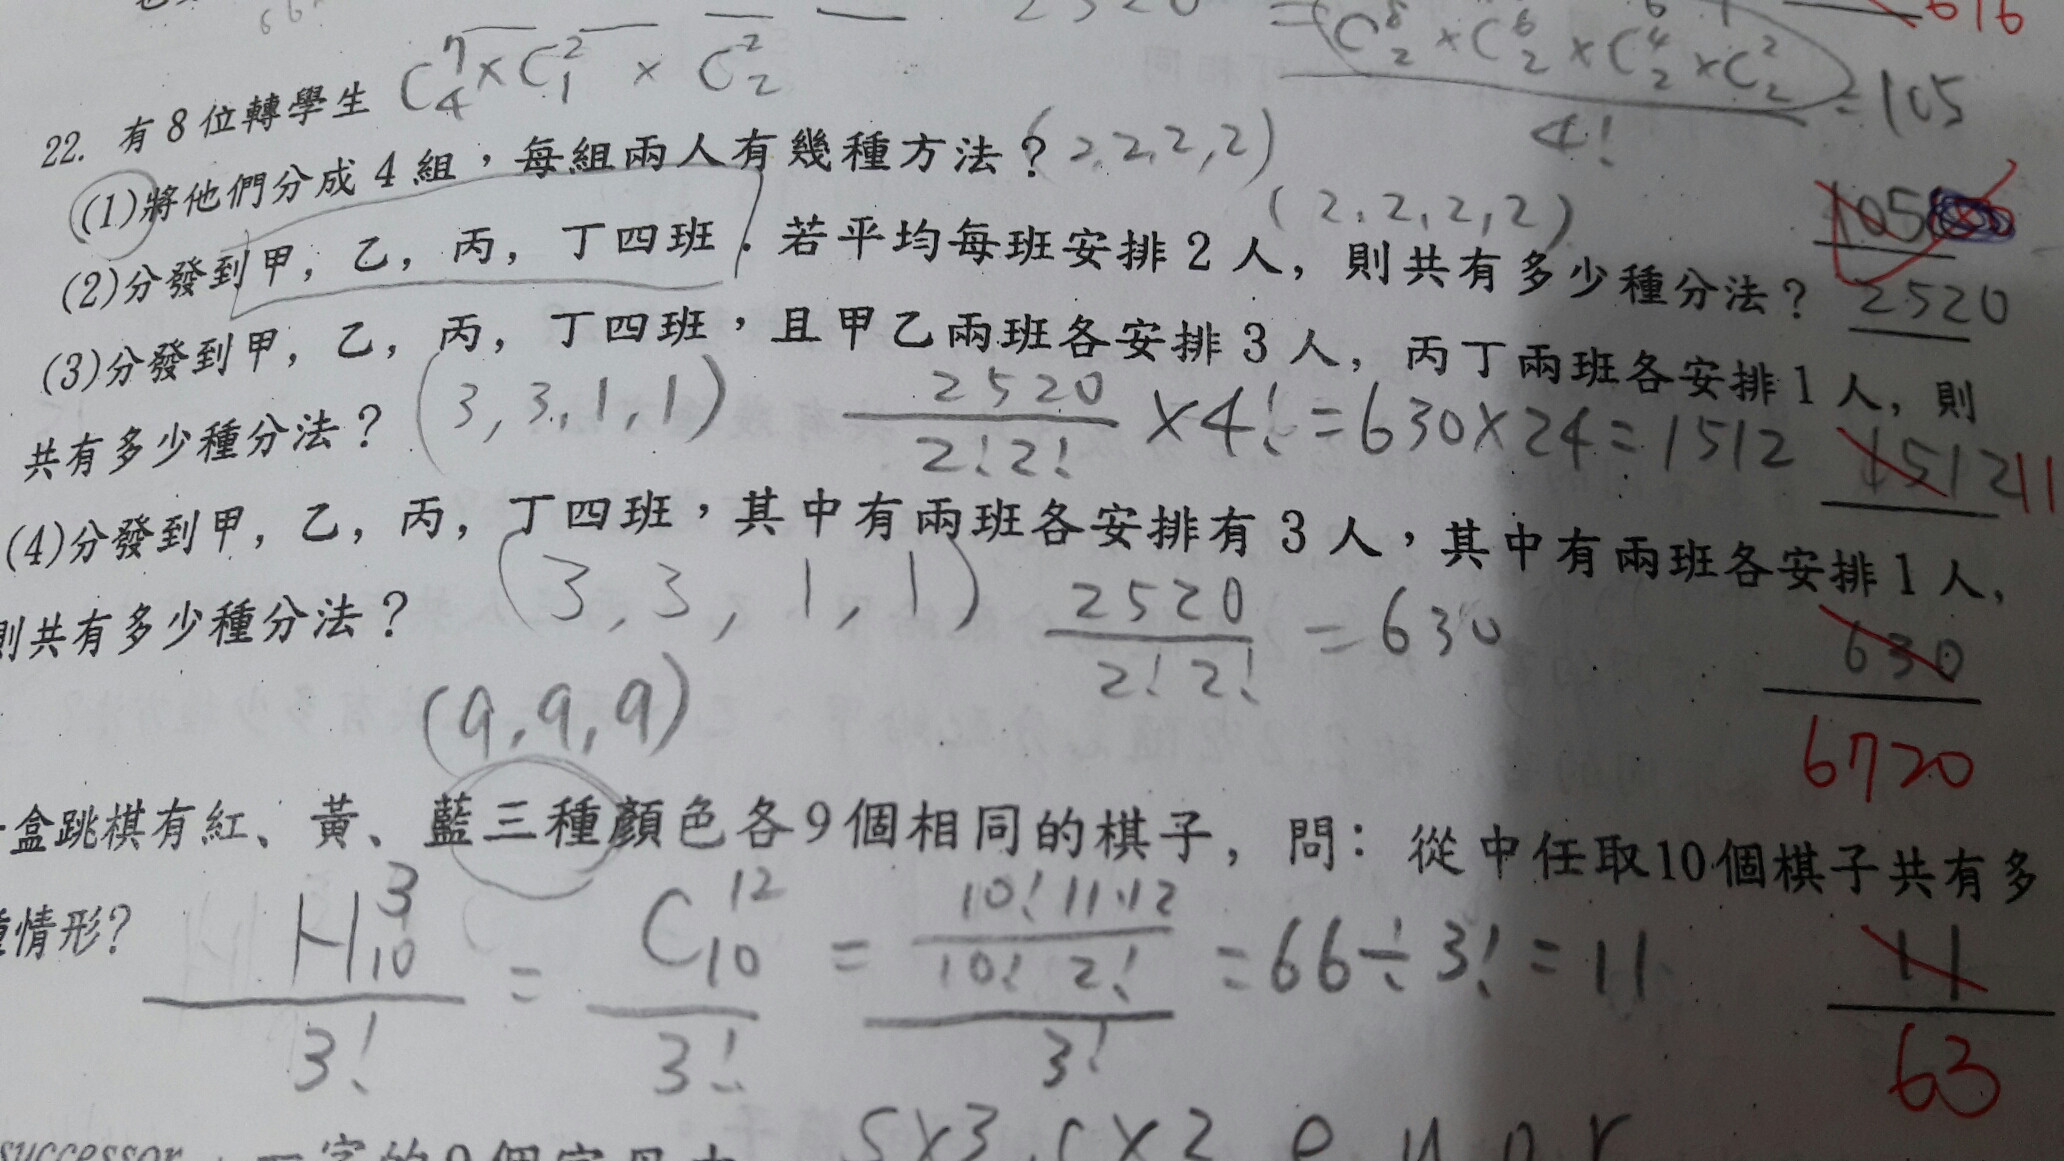 2520 = C⁸₂ × C⁶₂ × C⁴₂ × C²₂ / 4! = 105
616
C⁷₄ × C²₁ × C²₂
22. 有8位轉學生
(1)將他們分成4組，每組兩人有幾種方法？(2,2,2,2)
105
(2,2,2,2)
(2)分發到甲，乙，丙，丁四班．若平均每班安排2人，則共有多少種分法？ 2520
(3)分發到甲，乙，丙，丁四班，且甲乙兩班各安排3人，丙丁兩班各安排1人，則
共有多少種分法？ (3,3,1,1) 2520 / 2!2! × 4! = 630×24 = 1512 1512 11
(4)分發到甲，乙，丙，丁四班，其中有兩班各安排有3人，其中有兩班各安排1人，
則共有多少種分法？ (3,3,1,1) 2520 / 2!2! = 630 630
6720
(9,9,9)
盒跳棋有紅、黃、藍三種顏色各9個相同的棋子，問：從中任取10個棋子共有多
種情形？ H³₁₀ / 3! = C¹²₁₀ / 3! = 10!11·12 / 10!2! / 3! = 66÷3! = 11 11
63
successor